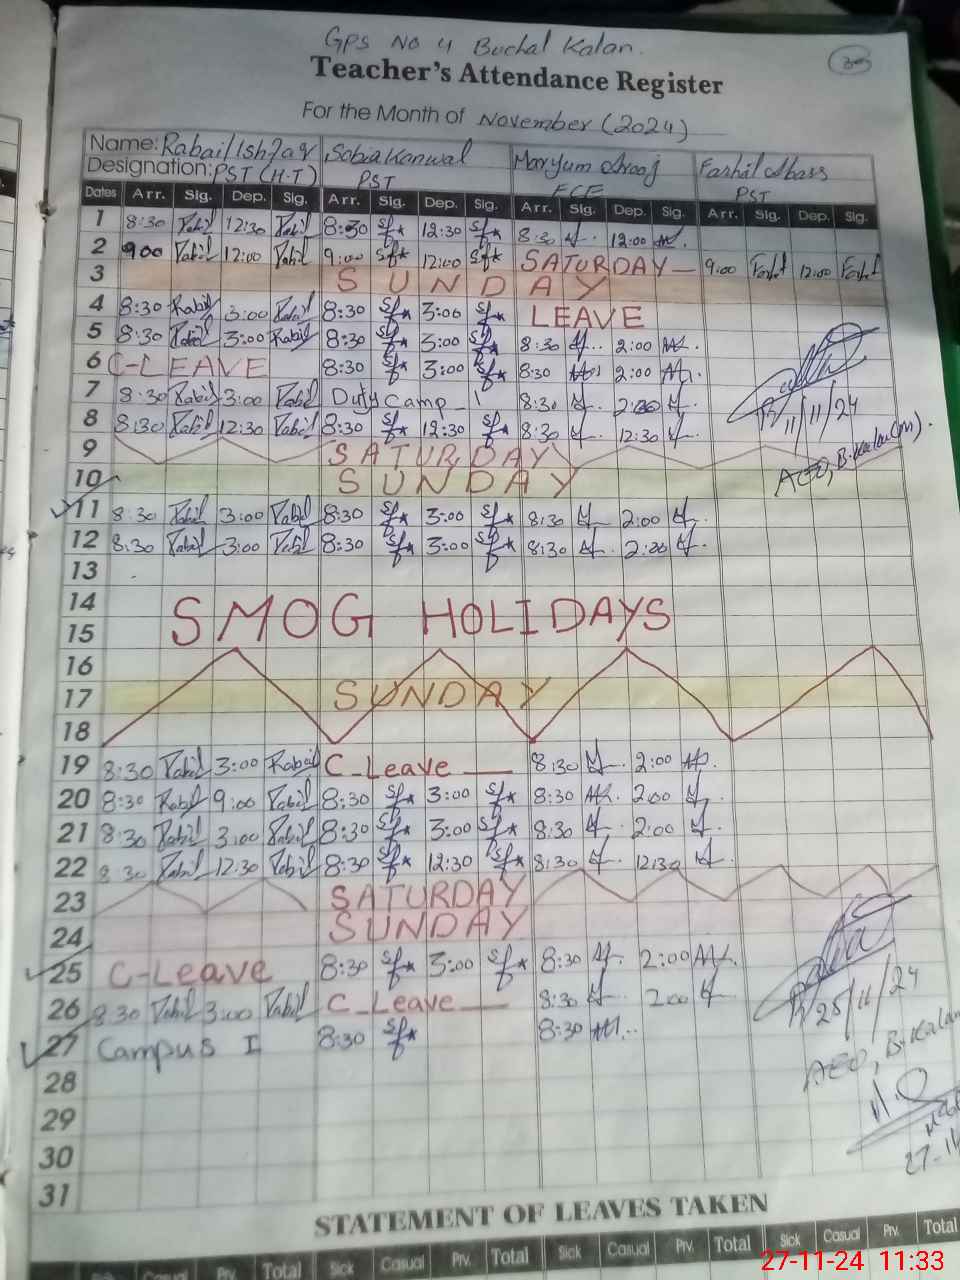 GPS No 4 Buchal Kalan.
30
Teacher's Attendance Register
For the Month of November (2024)
Name: Rabail Ishfaq Sobia Kanwal Maryum Arooj Farhat Abass
Designation: PST (H-T) PST ECE PST
Dates Arr. Sig. Dep. Sig. Arr. Sig. Dep. Sig. Arr. Sig. Dep. Sig. Arr. Sig. Dep. Sig.
1 8:30 Rabil 12:30 Rabil 8:30 12:30 8:30 12:00
2 900 Rabil 12:00 Rabil 9:00 12:00 SATURDAY 9:00 Farht 12:00 Farht
3 SUNDAY
4 8:30 Rabil 3:00 Rabil 8:30 3:00 LEAVE
5 8:30 Rabil 3:00 Rabil 8:30 3:00 8:30 2:00
6 C-LEAVE 8:30 3:00 8:30 2:00
7 8:30 Rabil 3:00 Rabil Duty Camp 8:30 2:00
8 8:30 Rabil 12:30 Rabil 8:30 12:30 8:30 12:30
11/11/24
9 SATURDAY
AEO, B.Kalan(M).
10 SUNDAY
11 8:30 Rabil 3:00 Rabil 8:30 3:00 8:30 2:00
12 8:30 Rabil 3:00 Rabil 8:30 3:00 8:30 2:00
13
14 SMOG HOLIDAYS
15
16
17 SUNDAY
18
19 8:30 Rabil 3:00 Rabail C-Leave 8:30 2:00
20 8:30 Rabil 9:00 Rabil 8:30 3:00 8:30 2:00
21 8:30 Rabil 3:00 Rabil 8:30 3:00 8:30 2:00
22 8:30 Rabil 12:30 Rabil 8:30 12:30 8:30 12:30
23 SATURDAY
24 SUNDAY
25 C-Leave 8:30 3:00 8:30 2:00
26 8:30 Rabil 3:00 Rabil C-Leave 8:30 2:00
25/11/24
27 Campus I 8:30 8:30
AEO, B.Kalan
28
29
30
31
STATEMENT OF LEAVES TAKEN
Sick Casual Prv. Total Sick Casual Prv. Total Sick Casual Prv. Total Sick Casual Prv. Total
27-11-24 11:33